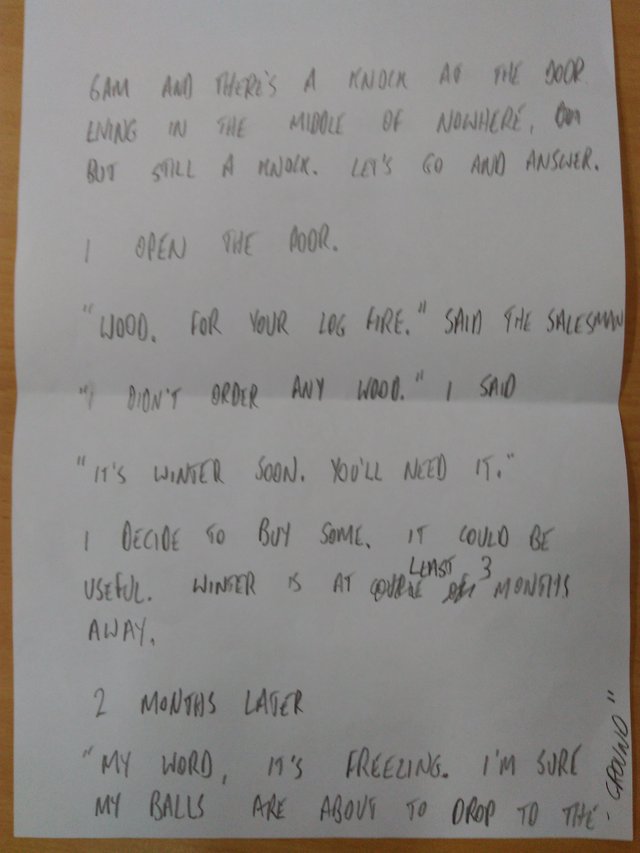 6AM AND THERE'S A KNOCK AT THE DOOR
LIVING IN THE MIDDLE OF NOWHERE,
BUT STILL A KNOCK. LET'S GO AND ANSWER.
I OPEN THE DOOR.
"WOOD. FOR YOUR LOG FIRE." SAID THE SALESMAN
"I DIDN'T ORDER ANY WOOD." I SAID
"IT'S WINTER SOON. YOU'LL NEED IT."
I DECIDE TO BUY SOME. IT COULD BE
USEFUL. WINTER IS AT LEAST 3 MONTHS
AWAY.
2 MONTHS LATER
"MY WORD, IT'S FREEZING. I'M SURE
MY BALLS ARE ABOUT TO DROP TO THE
GROUND"